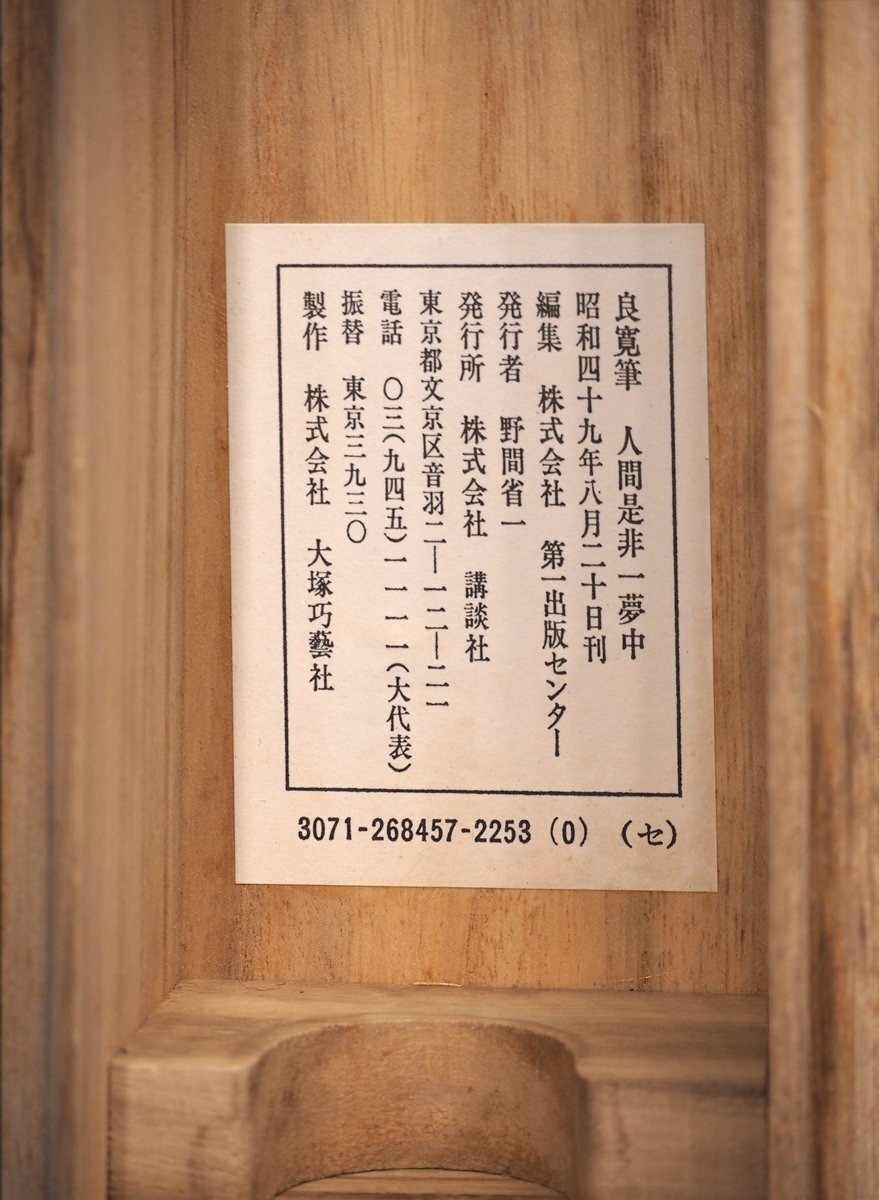 良寛筆　人間是非一夢中
昭和四十九年八月二十日刊
編集　株式会社　第一出版センター
発行者　野間省一
発行所　株式会社　講談社
東京都文京区音羽二―一二―二一
電話　〇三(九四五)一一一一(大代表)
振替　東京三九三〇
製作　株式会社　大塚巧藝社
3071-268457-2253 (0) (セ)